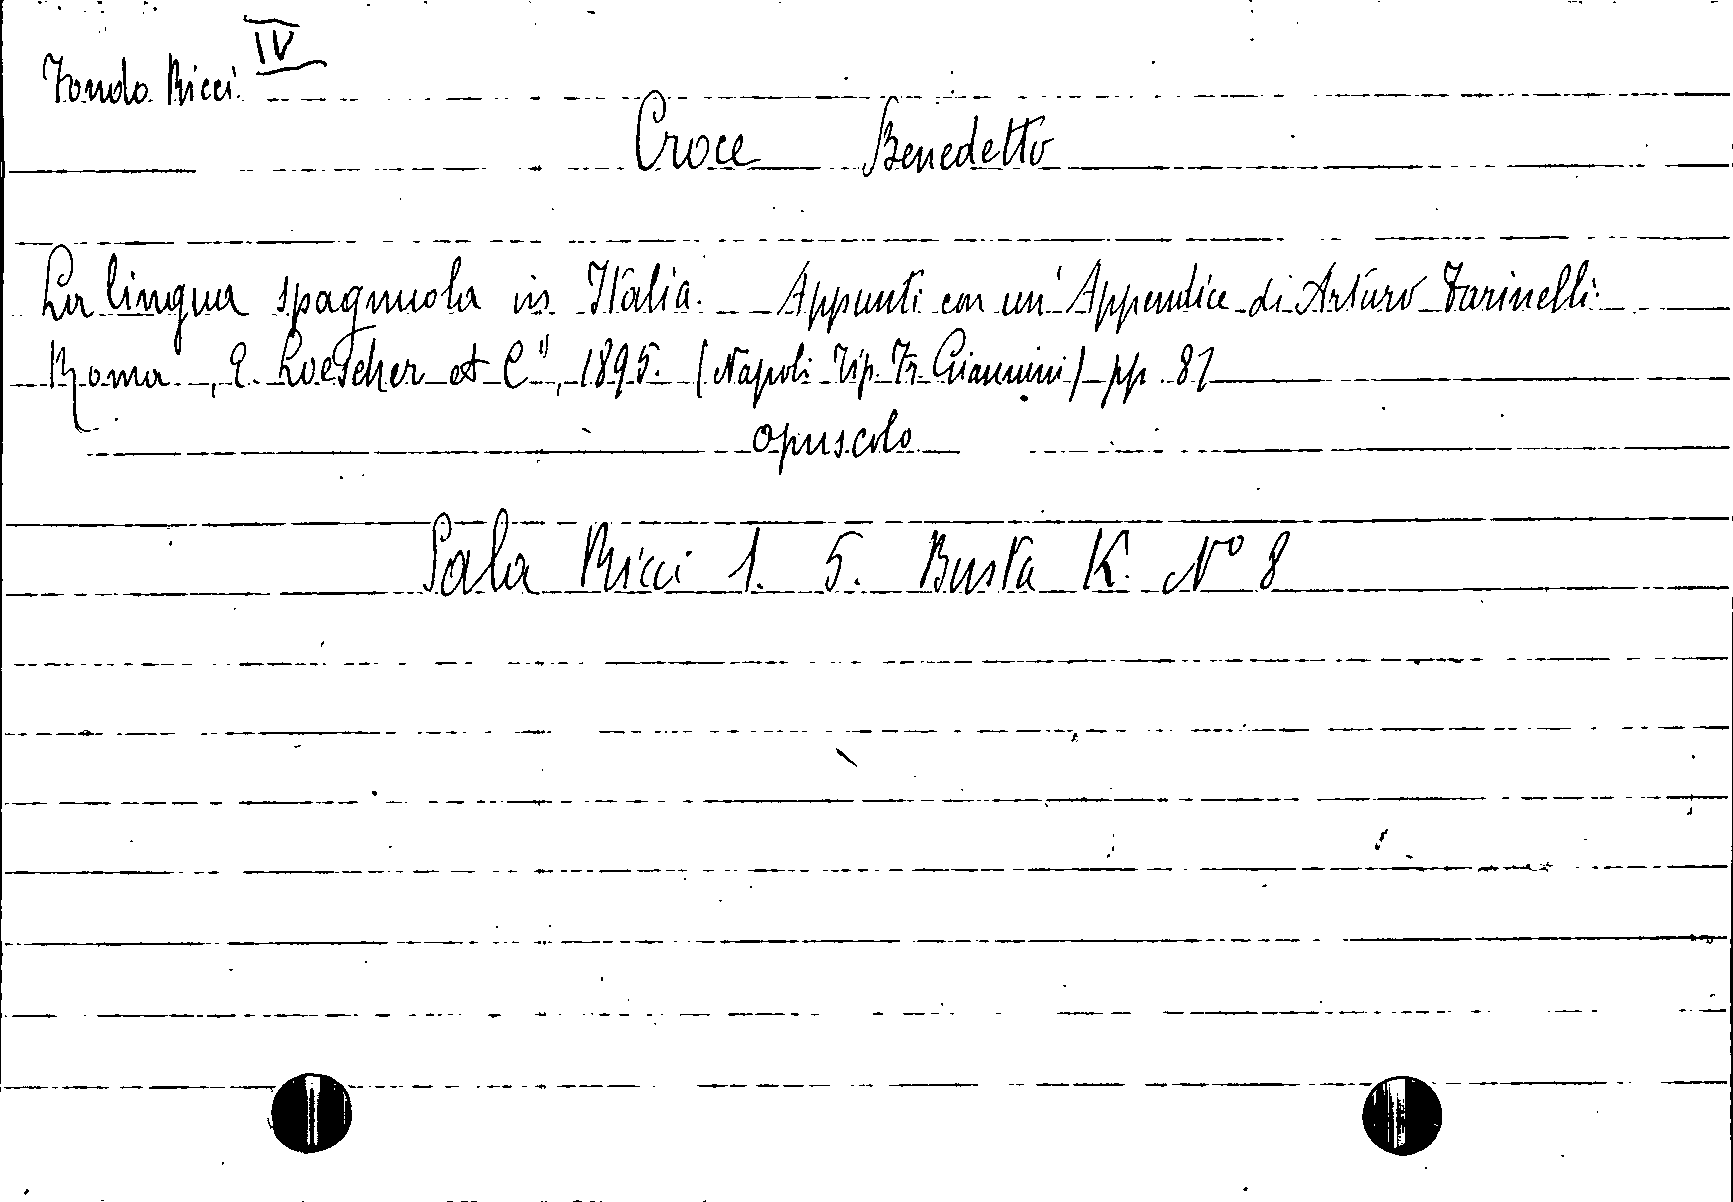 IV
Fondo Ricci
Croce Benedetto
La lingua spagnuola in Italia. Appunti con un' Appendice di Arturo Farinelli.
Roma, "E. Loescher et C", 1895. (Napoli Tip. Fr. Giannini) pp. 87
opuscolo
Sala Ricci 1. 5. Busta K. N° 8